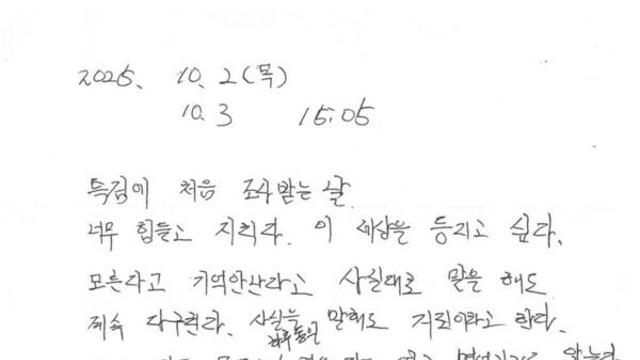 2025. 10. 2(목)
10. 3 15:05
특검에 처음 조사받는 날
너무 힘들고 지치다. 이 세상을 등지고 싶다.
모른다고 기억안난라고 사실대로 말을 해도
계속 다구친다. 사실을 말해도 거짓이라고 한다.